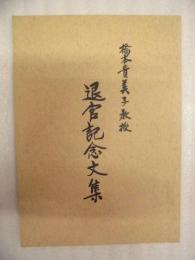 橋本貴美子教授
退官記念文集